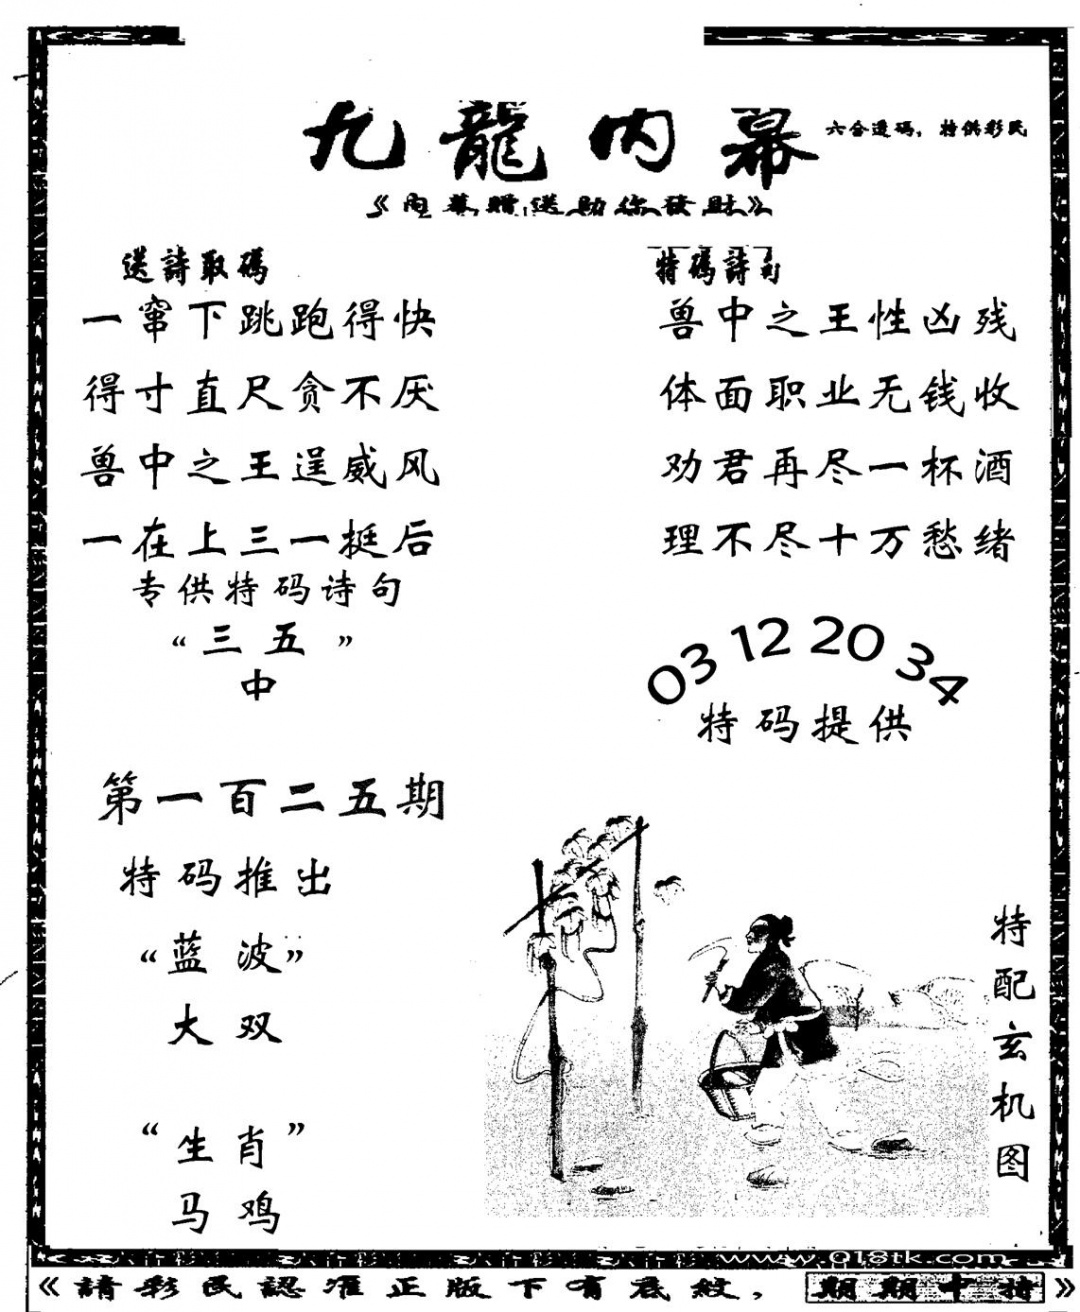 九龍内幕
六合透码，特供彩民
《内幕贈送助你發財》
送詩取碼
一窜下跳跑得快
得寸直尺贪不厌
兽中之王逞威风
一在上三一挺后
专供特码诗句
“三五”
中
特碼詩句
兽中之王性凶残
体面职业无钱收
劝君再尽一杯酒
理不尽十万愁绪
03 12 20 34
特码提供
第一百二五期
特码推出
“蓝波”
大双
“生肖”
马鸡
特配玄机图
www.018tk.com
《請彩民認准正版下有底紋，期期中特》